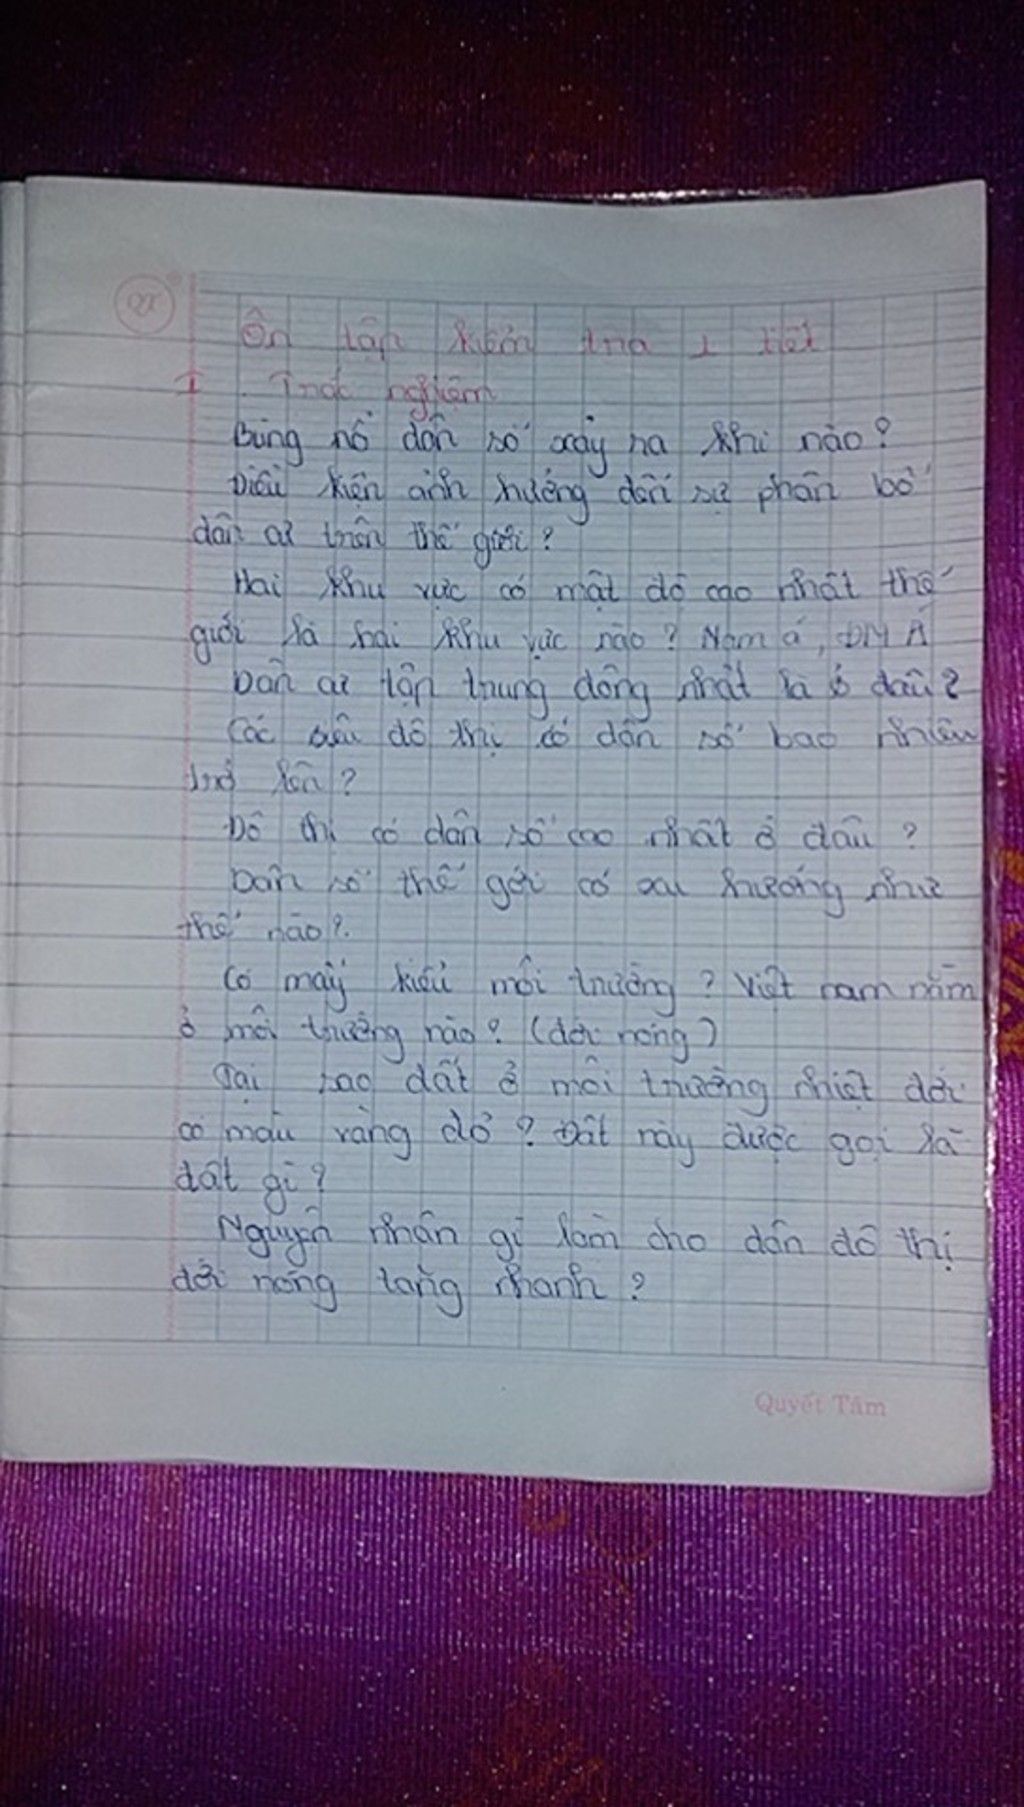 Ôn tập kiểm tra 1 tiết
I Trắc nghiệm
Bùng nổ dân số xảy ra khi nào?
Điều kiện ảnh hưởng đến sự phân bố
dân cư trên thế giới?
Hai khu vực có mật độ cao nhất thế
giới là hai khu vực nào? Nam á, ĐNÁ
Dân cư tập trung đông nhất là ở đâu?
Các siêu đô thị có dân số bao nhiêu
trở lên?
Đô thị có dân số cao nhất ở đâu?
Dân số thế giới có xu hướng như
thế nào?.
Có mấy kiểu môi trường? Việt nam nằm
ở môi trường nào? (đới nóng)
Tại sao đất ở môi trường nhiệt đới
có màu vàng đỏ? Đất này được gọi là
đất gì?
Nguyên nhân gì làm cho dân đô thị
đới nóng tăng nhanh?
Quyết Tâm